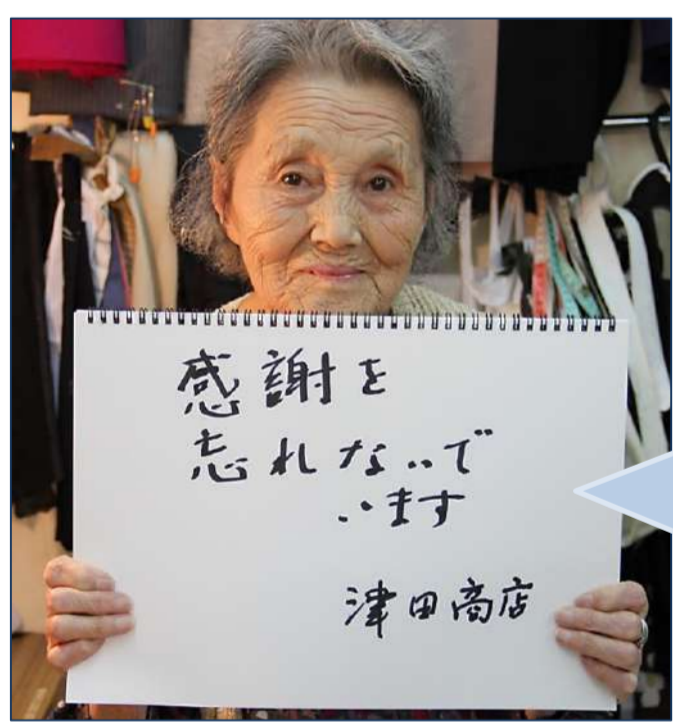 感謝を
忘れないで
います
津田商店